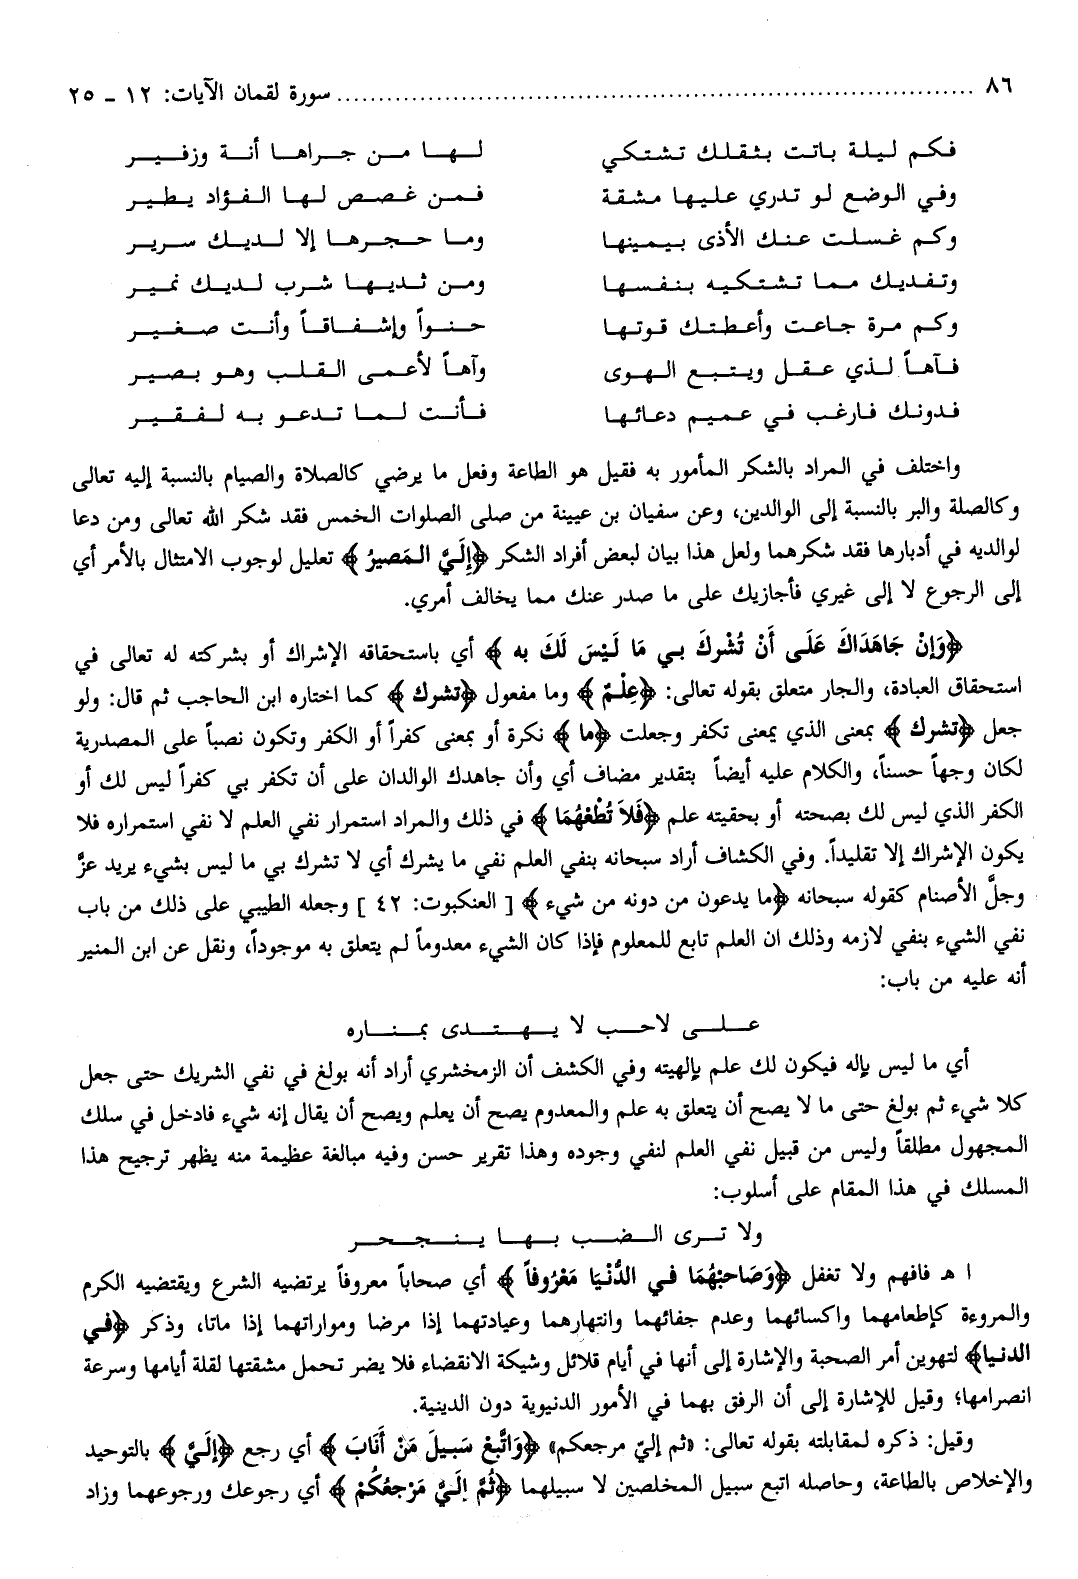 ٨٦ .......... سورة لقمان الآيات: ١٢ - ٢٥
فكم ليلة باتت بثقلك تشتكي لها من جراها أنة وزفير
وفي الوضع لو تدري عليها مشقة فمن غصص لها الفؤاد يطير
وكم غسلت عنك الأذى بيمينها وما حجرها إلا لديك سرير
وتفديك مما تشتكيه بنفسها ومن ثديها شرب لديك نمير
وكم مرة جاعت وأعطتك قوتها حنواً وإشفاقاً وأنت صغير
فآهاً لذي عقل ويتبع الهوى وآهاً لأعمى القلب وهو بصير
فدونك فارغب في عميم دعائها فأنت لما تدعو به لفقير
واختلف في المراد بالشكر المأمور به فقيل هو الطاعة وفعل ما يرضي كالصلاة والصيام بالنسبة إليه تعالى
وكالصلة والبر بالنسبة إلى الوالدين، وعن سفيان بن عيينة من صلى الصلوات الخمس فقد شكر الله تعالى ومن دعا
لوالديه في أدبارها فقد شكرهما ولعل هذا بيان لبعض أفراد الشكر ﴿إِلَيَّ المَصيرُ﴾ تعليل لوجوب الامتثال بالأمر أي
إلى الرجوع لا إلى غيري فأجازيك على ما صدر عنك مما يخالف أمري.
﴿وَإِنْ جَاهَدَاكَ عَلَى أَنْ تُشْركَ بي مَا لَيْسَ لَكَ به﴾ أي باستحقاقه الإشراك أو بشركته له تعالى في
استحقاق العبادة، والجار متعلق بقوله تعالى: ﴿عِلْمٌ﴾ وما مفعول ﴿تشرك﴾ كما اختاره ابن الحاجب ثم قال: ولو
جعل ﴿تشرك﴾ بمعنى الذي بمعنى تكفر وجعلت ﴿ما﴾ نكرة أو بمعنى كفراً أو الكفر وتكون نصباً على المصدرية
لكان وجهاً حسناً، والكلام عليه أيضاً بتقدير مضاف أي وأن جاهدك الوالدان على أن تكفر بي كفراً ليس لك أو
الكفر الذي ليس لك بصحته أو بحقيته علم ﴿فَلاَ تُطْعْهُمَا﴾ في ذلك والمراد استمرار نفي العلم لا نفي استمراره فلا
يكون الإشراك إلا تقليداً. وفي الكشاف أراد سبحانه بنفي العلم نفي ما يشرك أي لا تشرك بي ما ليس بشيء يريد عزَّ
وجلَّ الأصنام كقوله سبحانه ﴿ما يدعون من دونه من شيء﴾ [ العنكبوت: ٤٢ ] وجعله الطيبي على ذلك من باب
نفي الشيء بنفي لازمه وذلك ان العلم تابع للمعلوم فإذا كان الشيء معدوماً لم يتعلق به موجوداً، ونقل عن ابن المنير
أنه عليه من باب:
على لاحب لا يهتدى بمناره
أي ما ليس بإله فيكون لك علم بإلهيته وفي الكشف أن الزمخشري أراد أنه بولغ في نفي الشريك حتى جعل
كلا شيء ثم بولغ حتى ما لا يصح أن يتعلق به علم والمعدوم يصح أن يعلم ويصح أن يقال إنه شيء فادخل في سلك
المجهول مطلقاً وليس من قبيل نفي العلم لنفي وجوده وهذا تقرير حسن وفيه مبالغة عظيمة منه يظهر ترجيح هذا
المسلك في هذا المقام على أسلوب:
ولا ترى الضب بها ينجحر
ا هـ فافهم ولا تغفل ﴿وَصَاحبْهُمَا في الدُّنْيَا مَعْرُوفاً﴾ أي صحاباً معروفاً يرتضيه الشرع ويقتضيه الكرم
والمروءة كإطعامهما واكسائهما وعدم جفائهما وانتهارهما وعيادتهما إذا مرضا ومواراتهما إذا ماتا، وذكر ﴿في
الدنيا﴾ لتهوين أمر الصحبة والإشارة إلى أنها في أيام قلائل وشيكة الانقضاء فلا يضر تحمل مشقتها لقلة أيامها وسرعة
انصرامها؛ وقيل للإشارة إلى أن الرفق بهما في الأمور الدنيوية دون الدينية.
وقيل: ذكره لمقابلته بقوله تعالى: «ثم إليّ مرجعكم» ﴿وَاتَّبعْ سَبيلَ مَنْ أَنَابَ﴾ أي رجع ﴿إلَيَّ﴾ بالتوحيد
والإخلاص بالطاعة، وحاصله اتبع سبيل المخلصين لا سبيلهما ﴿ثُمَّ إلَيَّ مَرْجعُكُمْ﴾ أي رجوعك ورجوعهما وزاد